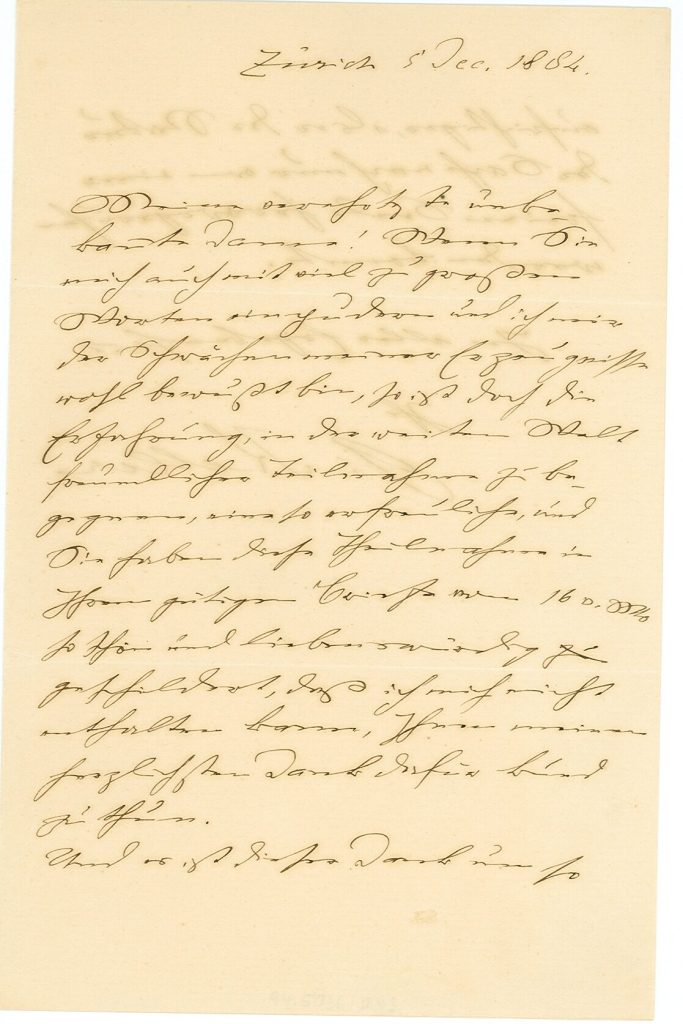 Zürich 5 Dec. 1884.
Meine verehrteste unbe
kannte Dame! Wenn Sie
mich auch mit viel zu großen
Worten einpudern und ich mir
der Schwächen meiner Erzeugnisse
wohl bewußt bin, so ist doch die
Erfahrung, in der weiten Welt
freundlicher Teilnahme zu be-
gegnen, eine so erfreuliche, und
Sie haben diese Theilnahme in
Ihrem gütigen Briefe vom 16 v. Mts
so schön und liebenswürdig
geschildert, daß ich mich nicht
enthalten kann, Ihnen meinen
herzlichsten Dank dafür kund
zu thun.
Und es ist dieser Dank um so